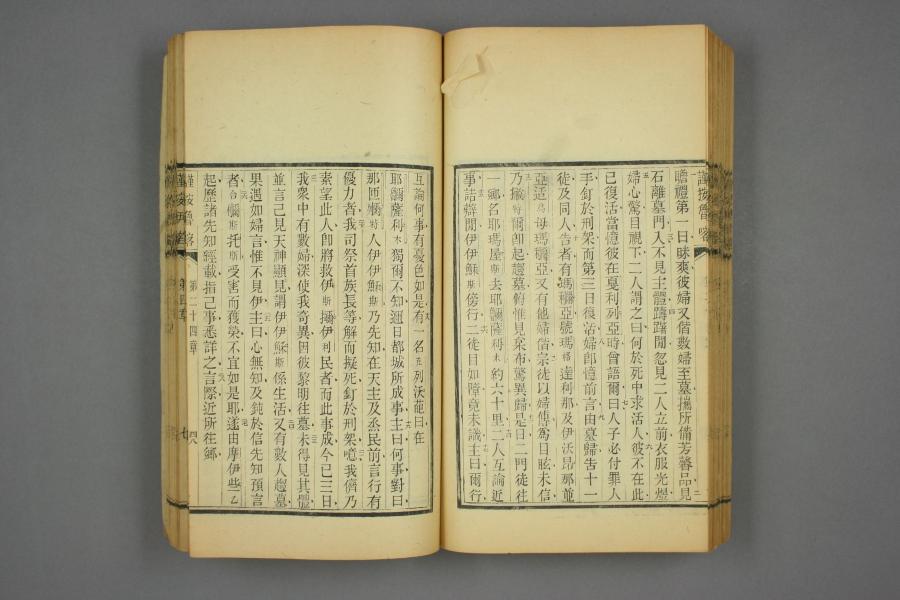 謹按魯喀
瞻禮第一日昧爽彼婦又偕數婦至墓攜所備芳馨品見
石離墓門入不見主體躊躇間忽見二人立前衣服光燿
婦心驚目視下二人謂之曰何於死中求活人彼不在此
已復活當憶彼在戛利列亞時曾語爾曰人子必付罪人
手釘於刑架而第三日復活婦卽憶前言由墓歸告十一
徒及同人告者有瑪爾亞號瑪格達利那及伊沃昂那並
亞适烏母瑪爾亞又有他婦偕宗徒以婦傳爲目眩未信
乃撇特爾卽起趨墓俯惟見枲布驚異歸是日二門徒往
一鄉名耶瑪屋斯去耶嚕薩利木約六十里二人互論近
事詰辯間伊伊穌斯傍行二徒目如障竟未識主曰爾行
互論何事有憂色如是有一名克列沃葩曰在
耶嚕薩利木獨爾不知邇日都城所成事主曰何事對曰
那匝爾特人伊伊穌斯乃先知在天主及烝民前言行有
優力者我司祭首族長等解而擬死釘於刑架噫我儕乃
素望此人卽將救伊斯擳伊利民者而此事成今已三日
我衆中有數婦深使我奇異因彼黎明往墓未得見其體
並言己見天神顯見謂伊伊穌斯係生活又有數人趨墓
果遇如婦言惟不見伊主曰心無知及鈍於信先知預言
者合爾斯托斯受害而獲榮不宜如是耶遂由摩伊些乙
起歷諸先知經載指己事悉詳之言際近所往鄉
謹按魯喀
第二十四章